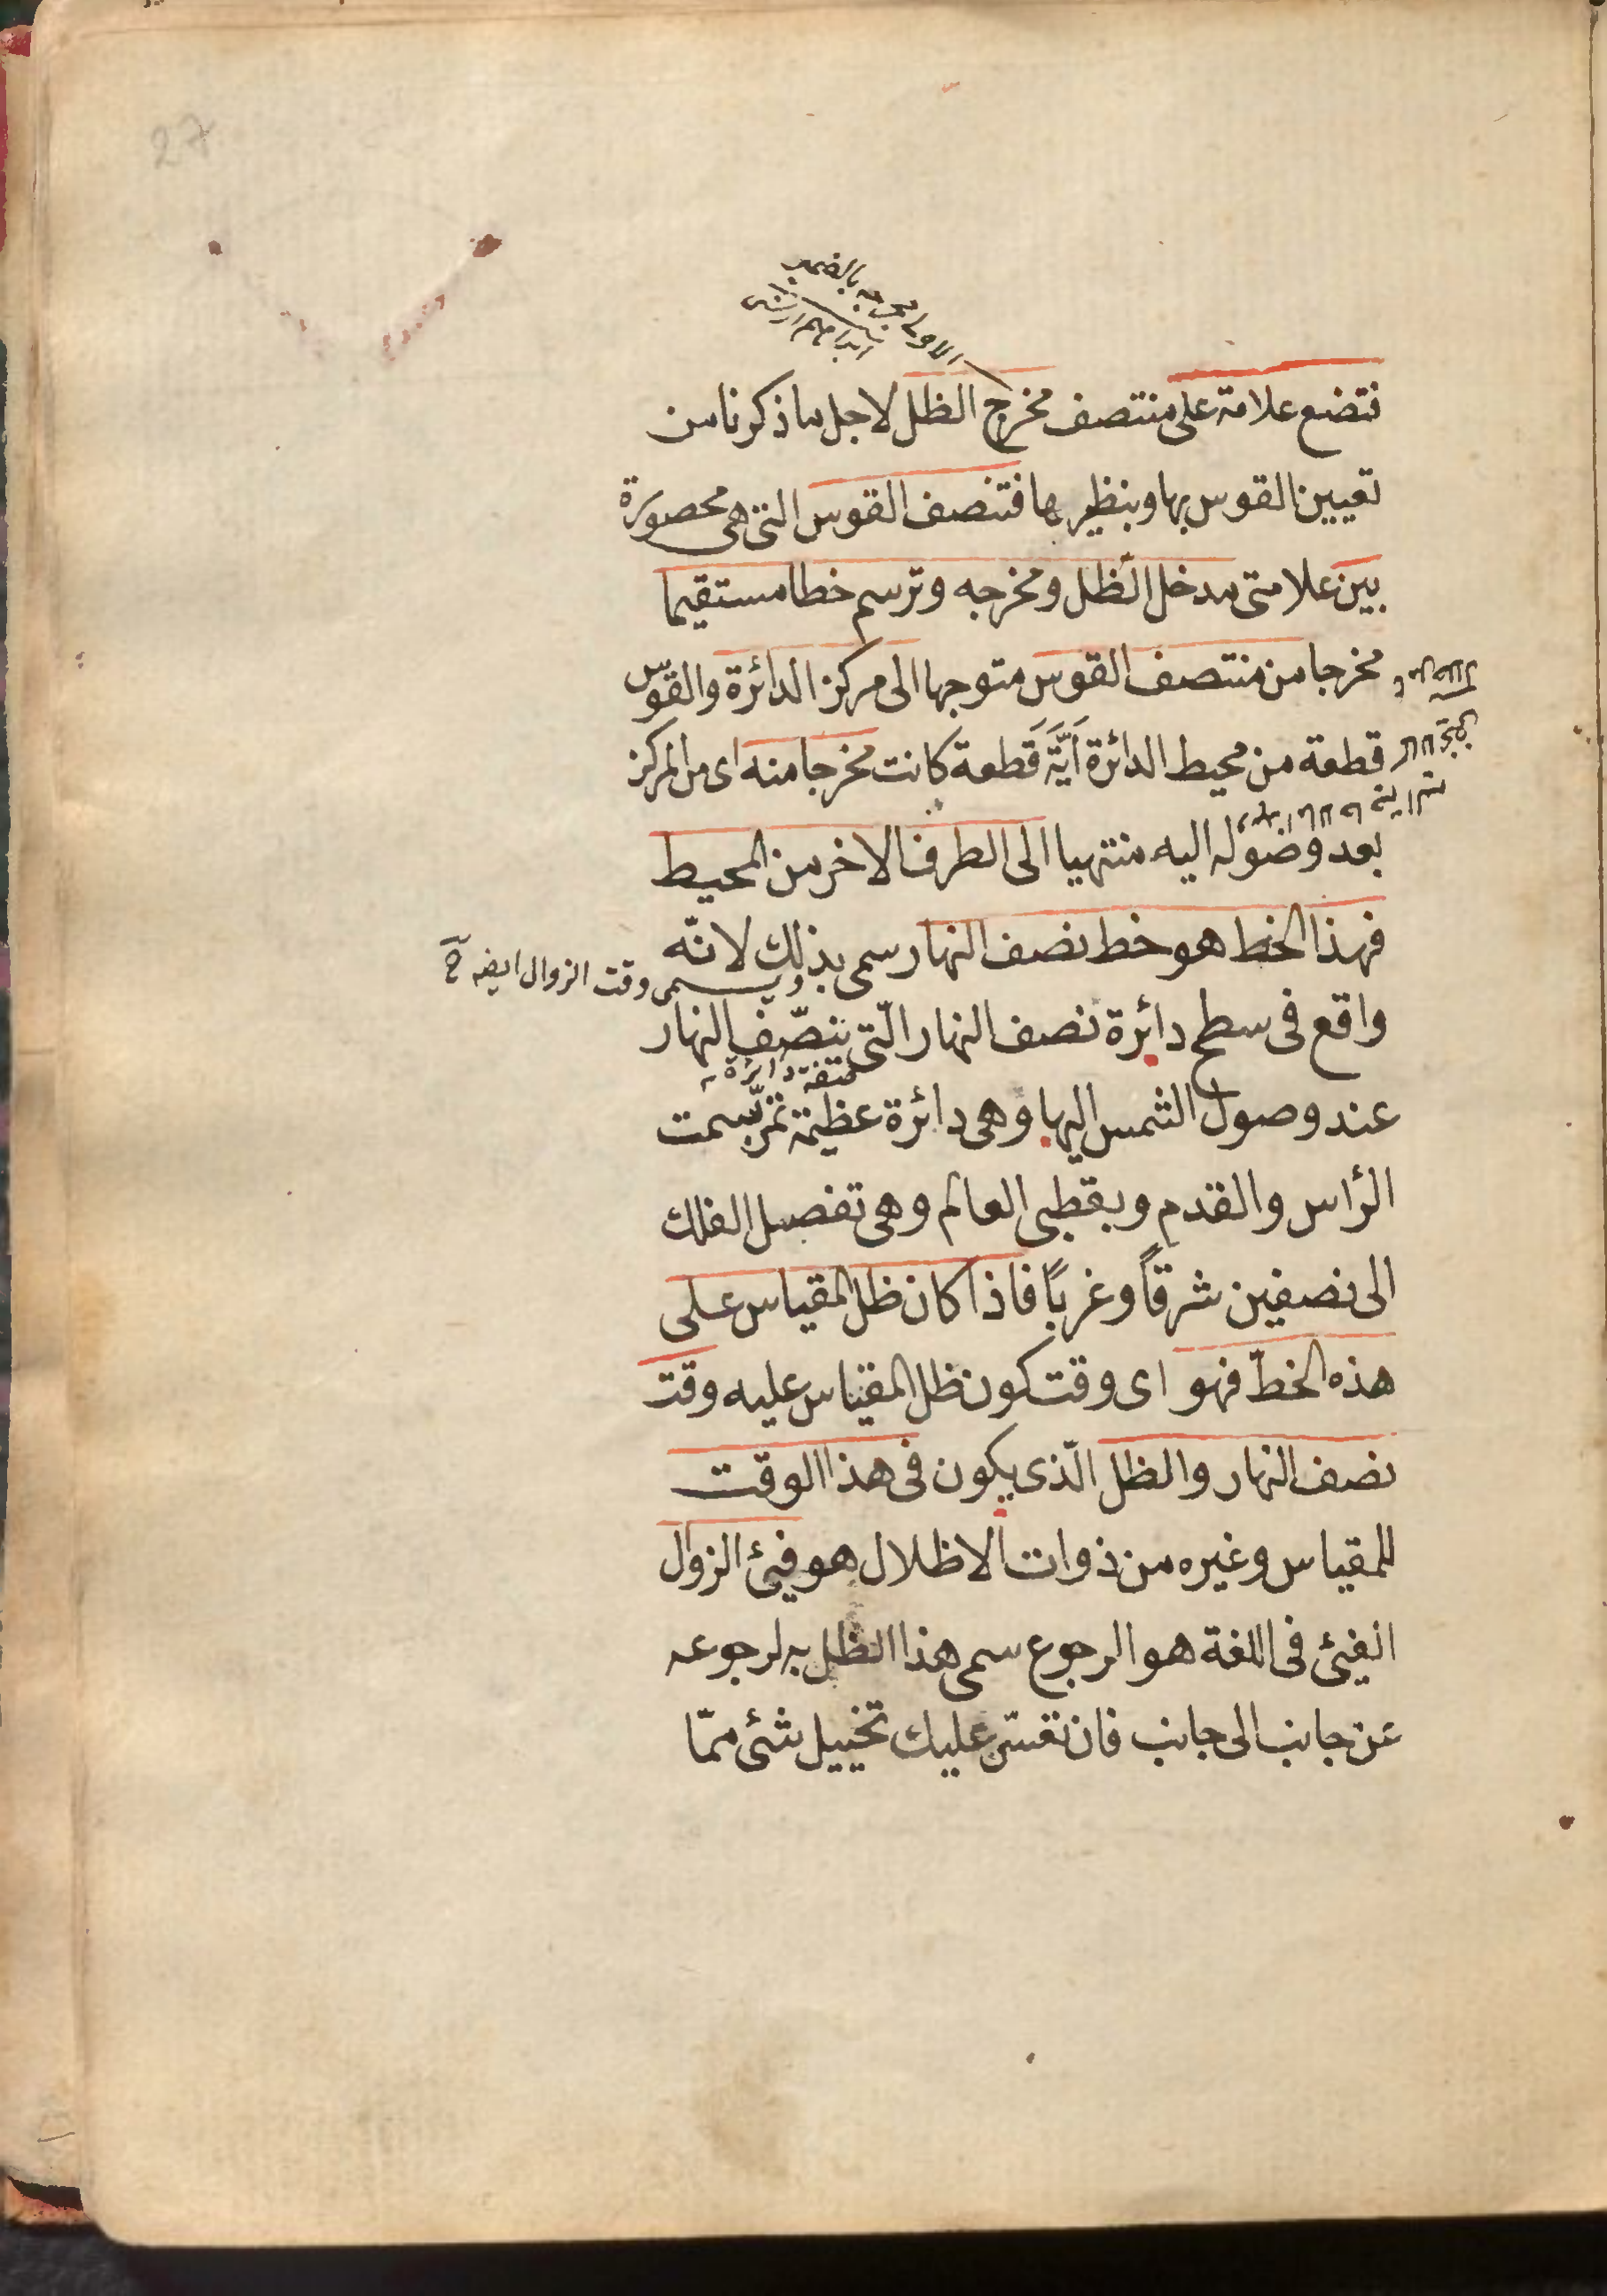 27
فتضع علامة على منتصف مخرج الظل لاجل ما ذكرنا من
تعيين القوس بها وبنظيرها فتنصف القوس التى هى محصورة
بين علامتى مدخل الظل ومخرجه وترسم خطا مستقيما
مخرجا من منتصف القوس متوجها الى مركز الدائرة والقوس
قطعة من محيط الدائرة اَيَّةَ قَطعة كانت مخرجا منه اى من المركز
بعد وصوله اليه منتهيا الى الطرف الاخر من المحيط
فهذا الخط هو خط نصف النهار سمى بذلك لانّه
ويسمى وقت الزوال ايضه
واقع فى سطح دائرة نصف النهار الّتى ينصّف النهار
صفة دائرة
عند وصول الشمس اليها وهى دائرة عظيمة تمرّ بسمت
الرأس والقدم وبقطبى العالم وهى تفصل الفلك
الى نصفين شرقاً وغرباً فاذا كان ظل المقياس على
هذه الخطّ فهو اى وقت كون ظل المقياس عليه وقت
نصف النهار والظل الّذى يكون فى هذا الوقت
للمقياس وغيره من ذوات الاظلال هو فيئ الزوال
الفيئ فى اللغة هو الرجوع سمى هذا الظل به لرجوعه
عن جانب الى جانب فان تعسّر عليك تخييل شئ ممّا